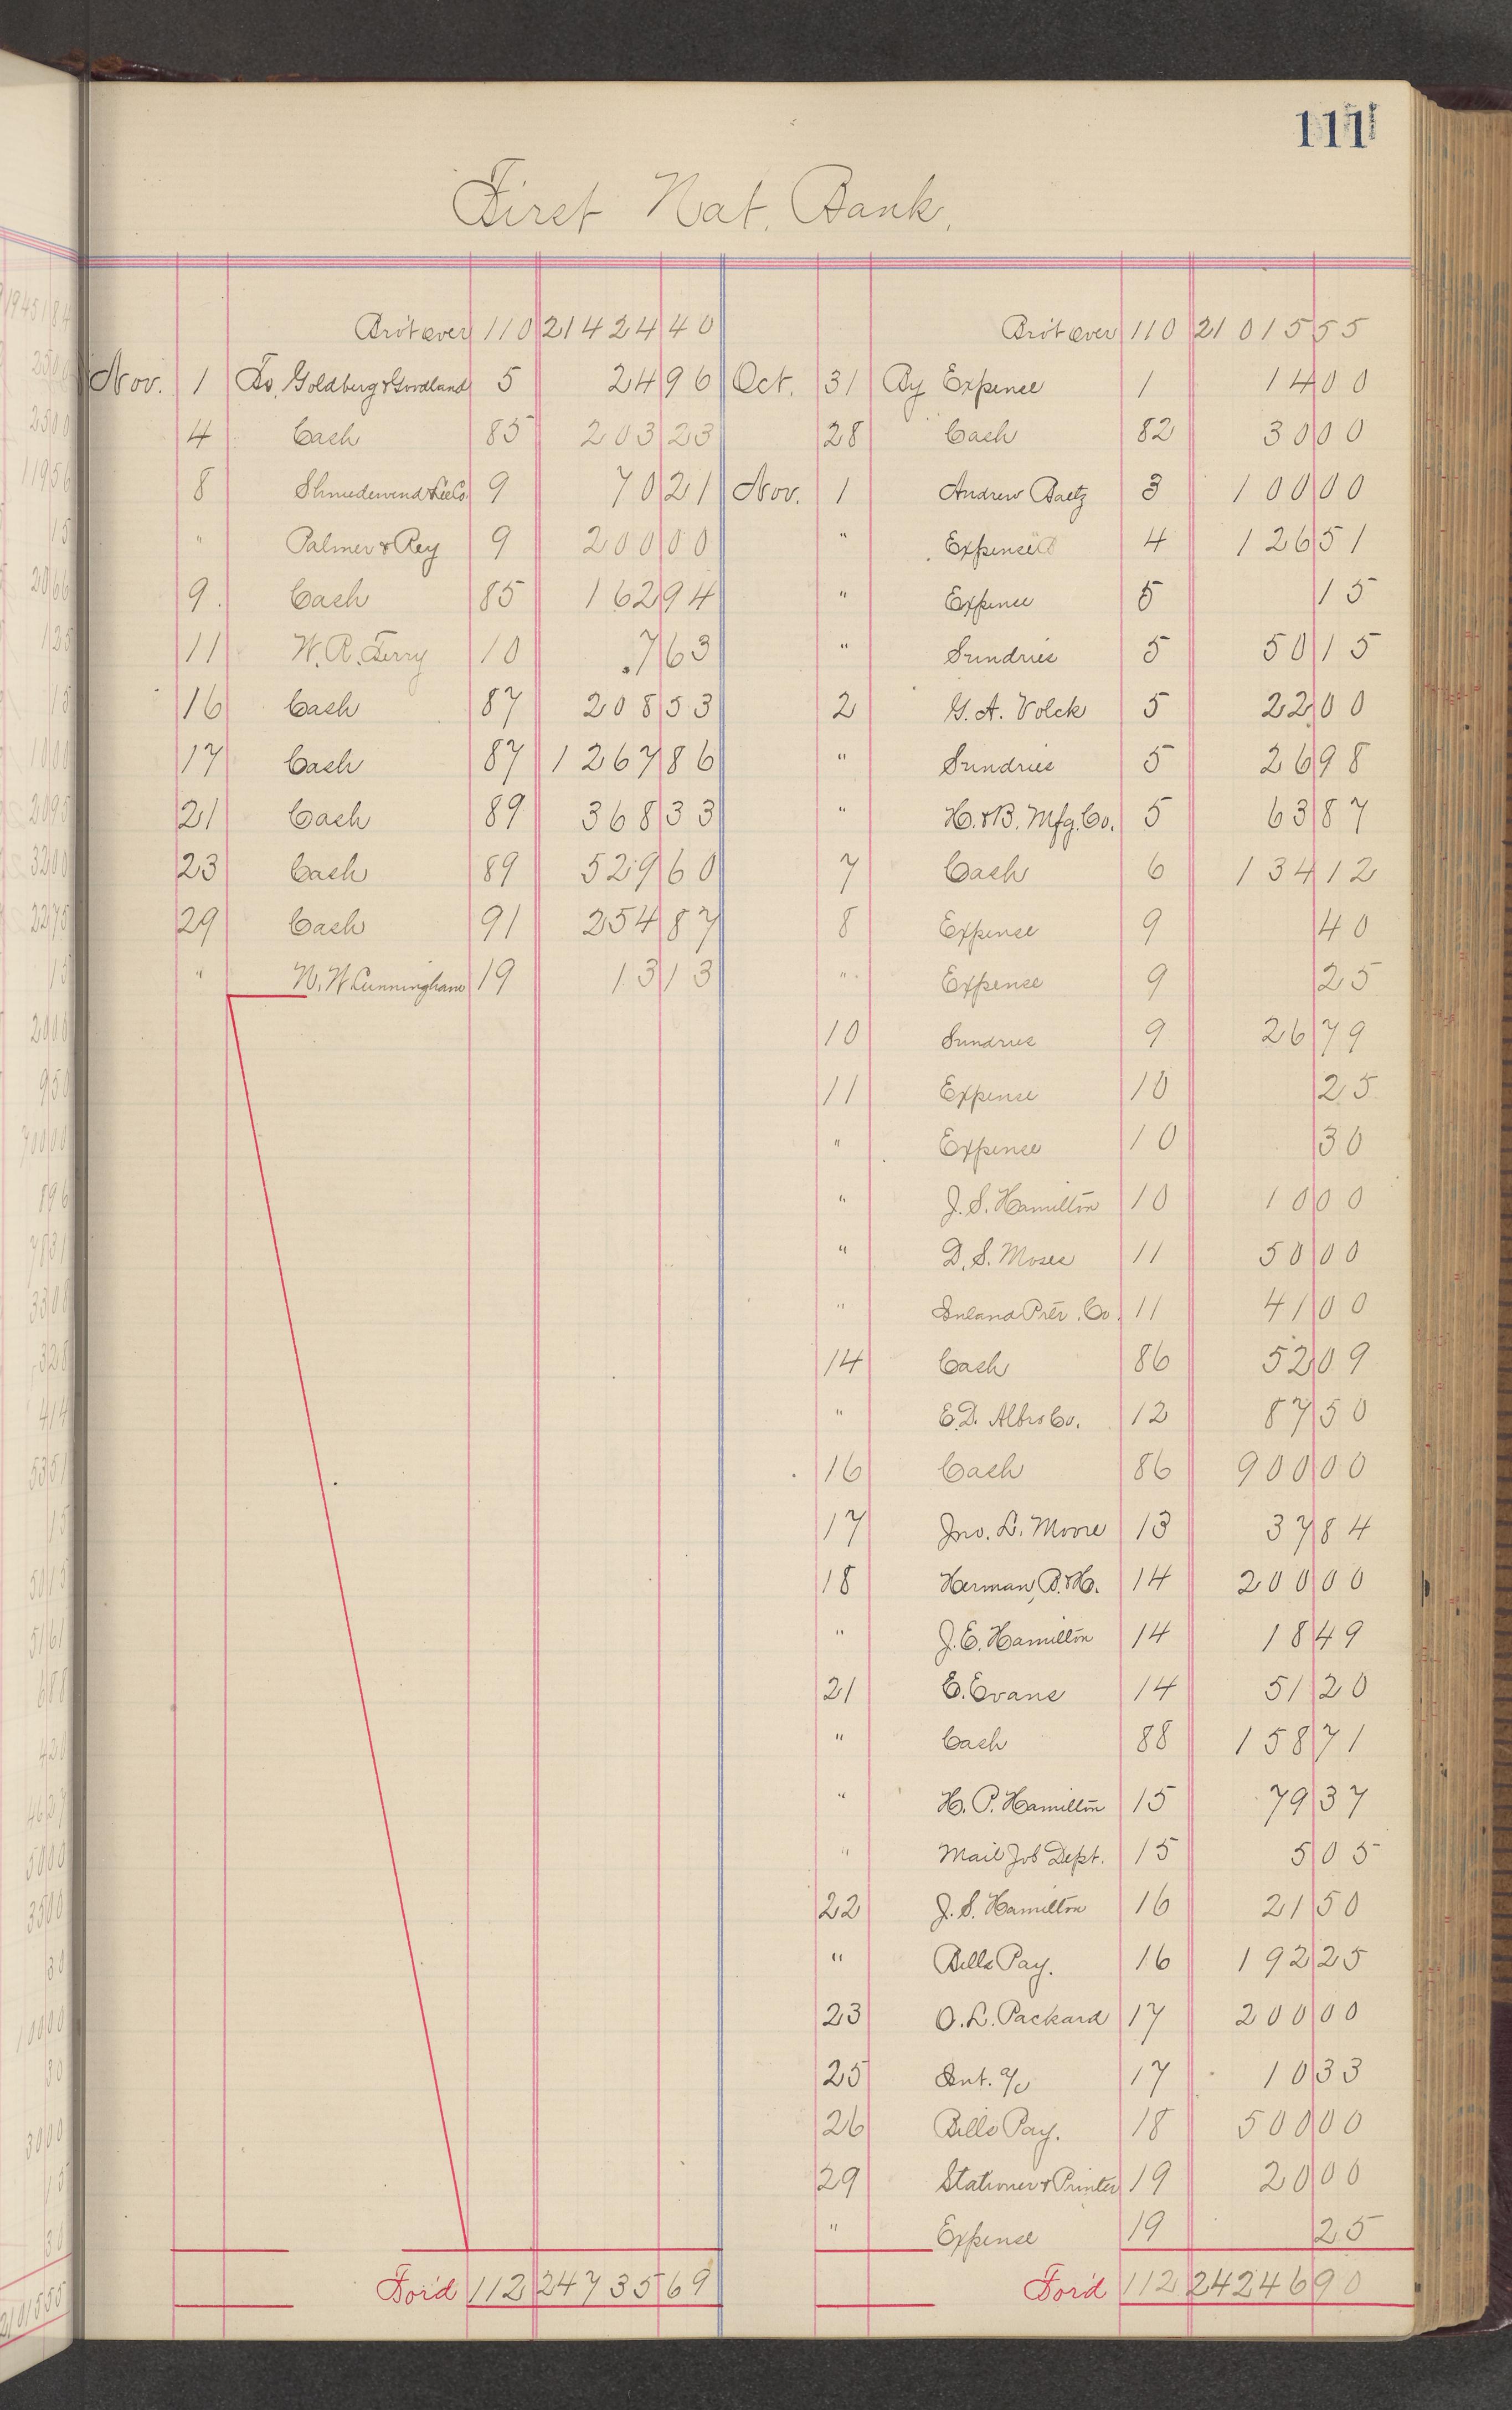 111
First Nat. Bank.
Bro't over 110 21424 40
Nov. 1 To, Goldberg & Gordland 5 24 96
4 Cash 85 203 23
8 9 70 21
" Palmer & Rey 9 200 00
9. Cash 85 162 94
11 W. R. Terry 10 7 63
16 Cash 87 208 53
17 Cash 87 1267 86
21 Cash 89 368 33
23 Cash 89 529 60
29 Cash 91 254 87
" W. W. Cunningham 19 13 13
For'd 112 24735 69
Bro't over 110 21015 55
Oct. 31 By Expense 1 14 00
28 Cash 82 30 00
Nov. 1 Andrew Baetz 3 100 00
" Expense 4 126 51
" Expense 5 15
" Sundries 5 50 15
2 G. A. Volck 5 22 00
" Sundries 5 26 98
" H. & B. Mfg. Co. 5 63 87
7 Cash 6 134 12
8 Expense 9 40
" Expense 9 25
10 Sundries 9 26 79
11 Expense 10 25
" Expense 10 30
" J. S. Hamilton 10 10 00
" D. S. Moses 11 50 00
" Inland Ptr. Co. 11 41 00
14 Cash 86 52 09
" E. D. Albro Co. 12 87 50
16 Cash 86 900 00
17 Jno. L. Moore 13 37 84
18 Herman, B. & H. 14 200 00
" J. E. Hamilton 14 18 49
21 E. Evans 14 51 20
" Cash 88 158 71
" H. P. Hamilton 15 79 37
" Mail Job Dept. 15 5 05
22 J. S. Hamilton 16 21 50
" Bills Pay. 16 192 25
23 O. L. Packard 17 200 00
25 Int. a/c 17 10 33
26 Bills Pay. 18 500 00
29 Stationer & Printer 19 20 00
" Expense 19 25
For'd 112 24246 90